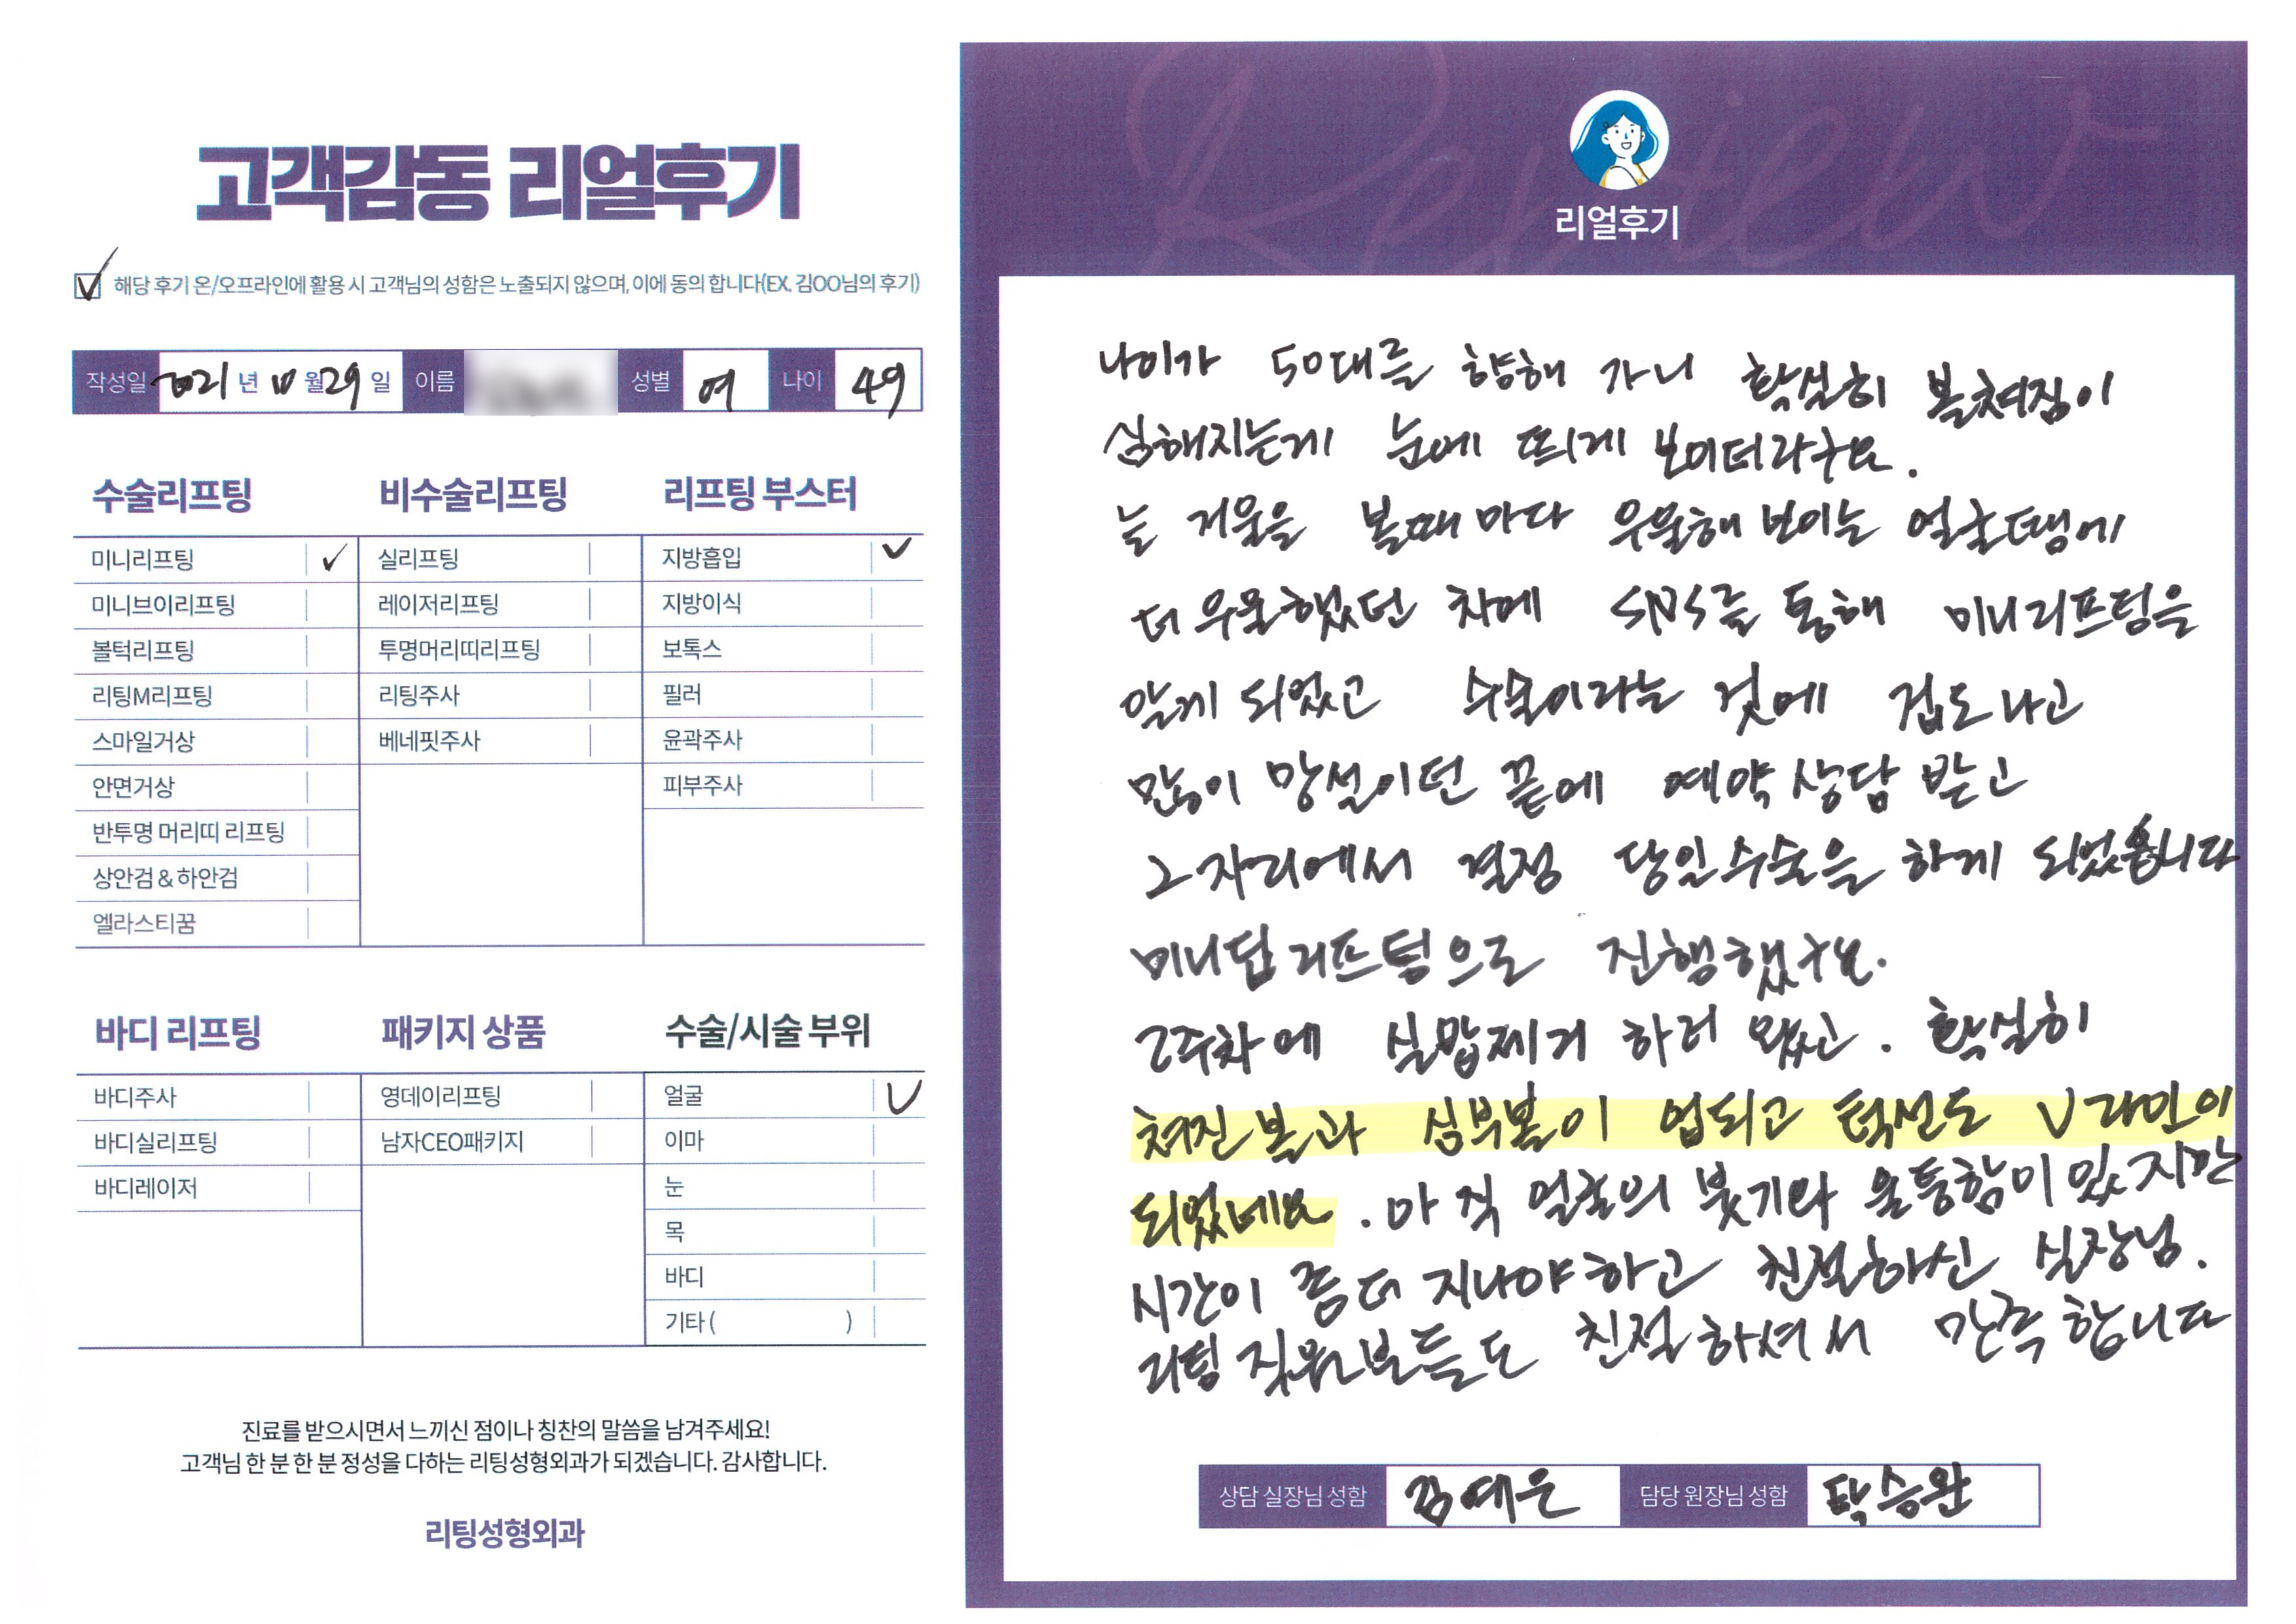 고객감동 리얼후기
해당 후기 온/오프라인에 활용 시 고객님의 성함은 노출되지 않으며, 이에 동의 합니다(EX. 김OO님의 후기)
작성일 2021 년 10 월 29 일 이름 성별 여 나이 49
수술리프팅
미니리프팅 ✓
미니브이리프팅
볼턱리프팅
리팅M리프팅
스마일거상
안면거상
반투명 머리띠 리프팅
상안검 & 하안검
엘라스티꿈
비수술리프팅
실리프팅
레이저리프팅
투명머리띠리프팅
리팅주사
베네핏주사
리프팅 부스터
지방흡입 ✓
지방이식
보톡스
필러
윤곽주사
피부주사
바디 리프팅
바디주사
바디실리프팅
바디레이저
패키지 상품
영데이리프팅
남자CEO패키지
수술/시술 부위
얼굴 ✓
이마
눈
목
바디
기타 ( )
진료를 받으시면서 느끼신 점이나 칭찬의 말씀을 남겨주세요!
고객님 한 분 한 분 정성을 다하는 리팅성형외과가 되겠습니다. 감사합니다.
리팅성형외과
Review
리얼후기
나이가 50대를 향해 가니 확실히 볼쳐짐이
심해지는게 눈에 띄게 보이더라구요.
늘 거울을 볼때마다 우울해 보이는 얼굴땜에
더 우울했던 차에 SNS를 통해 미니리프팅을
알게 되었고 수술이라는 것에 겁도 나고
많이 망설이던 끝에 예약 상담 받고
그자리에서 결정 당일수술을 하게 되었습니다
미니딥리프팅으로 진행했구요.
2주차에 실밥제거 하러 왔고. 확실히
쳐진 볼과 심부볼이 업되고 턱선도 V라인이
되었네요. 아직 얼굴의 붓기와 울퉁함이 있지만
시간이 좀더 지나야하고 친절하신 실장님.
리팅 직원분들도 친절하셔서 만족합니다
상담 실장님 성함 김예은 담당 원장님 성함 탁승완